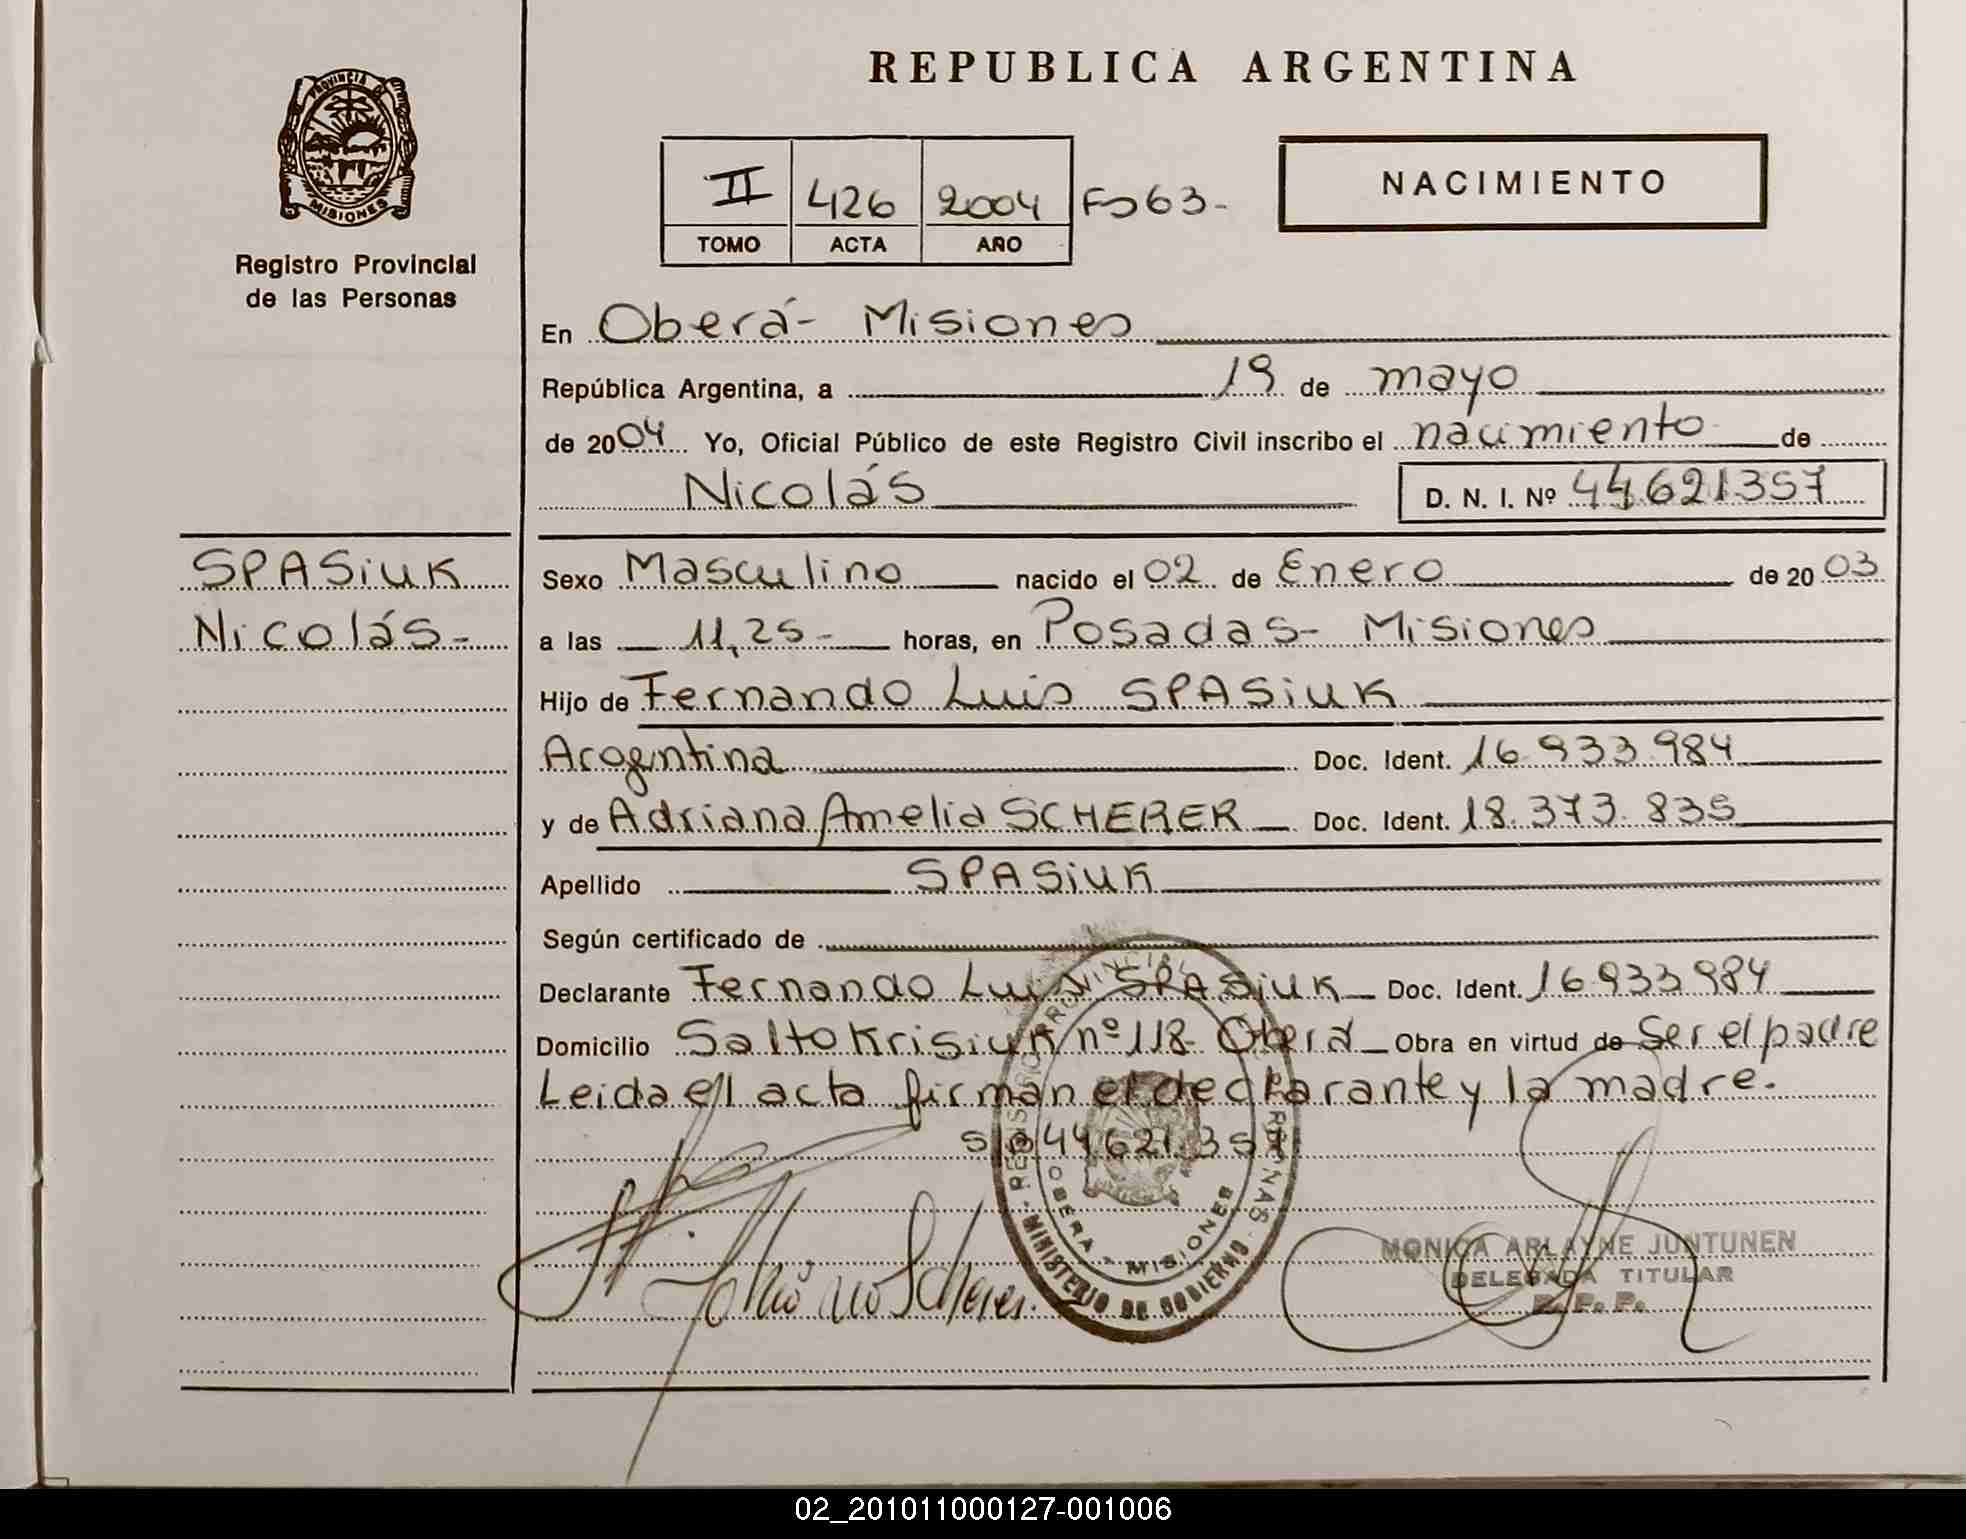 REPUBLICA ARGENTINA
PROVINCIA DE
MISIONES
Registro Provincial
de las Personas
II 426 2004 Fo 63-
TOMO ACTA AÑO
NACIMIENTO
En Oberá- Misiones
República Argentina, a 19 de mayo
de 2004 Yo, Oficial Público de este Registro Civil inscribo el nacimiento de
Nicolás D. N. I. Nº 44.621.357
SPASiUK
Nicolás-
Sexo Masculino nacido el 02 de Enero de 2003
a las 11,25- horas, en Posadas- Misiones
Hijo de Fernando Luis SPASiUK
Argentina Doc. Ident. 16.933.984
y de Adriana Amelia SCHERER Doc. Ident. 18.373.835
Apellido SPASiUK
Según certificado de
Declarante Fernando Luis SPASiUK Doc. Ident. 16933984
Domicilio Salto Krisiuk nº 118- Oberá Obra en virtud de Ser el padre
Leida el acta firman el declarante y la madre.
44621.357
REGISTRO PROVINCIAL DE LAS PERSONAS
OBERA - MISIONES
MINISTERIO DE GOBIERNO
MONICA ARLAYNE JUNTUNEN
DELEGADA TITULAR
R. P. P.
02_201011000127-001006